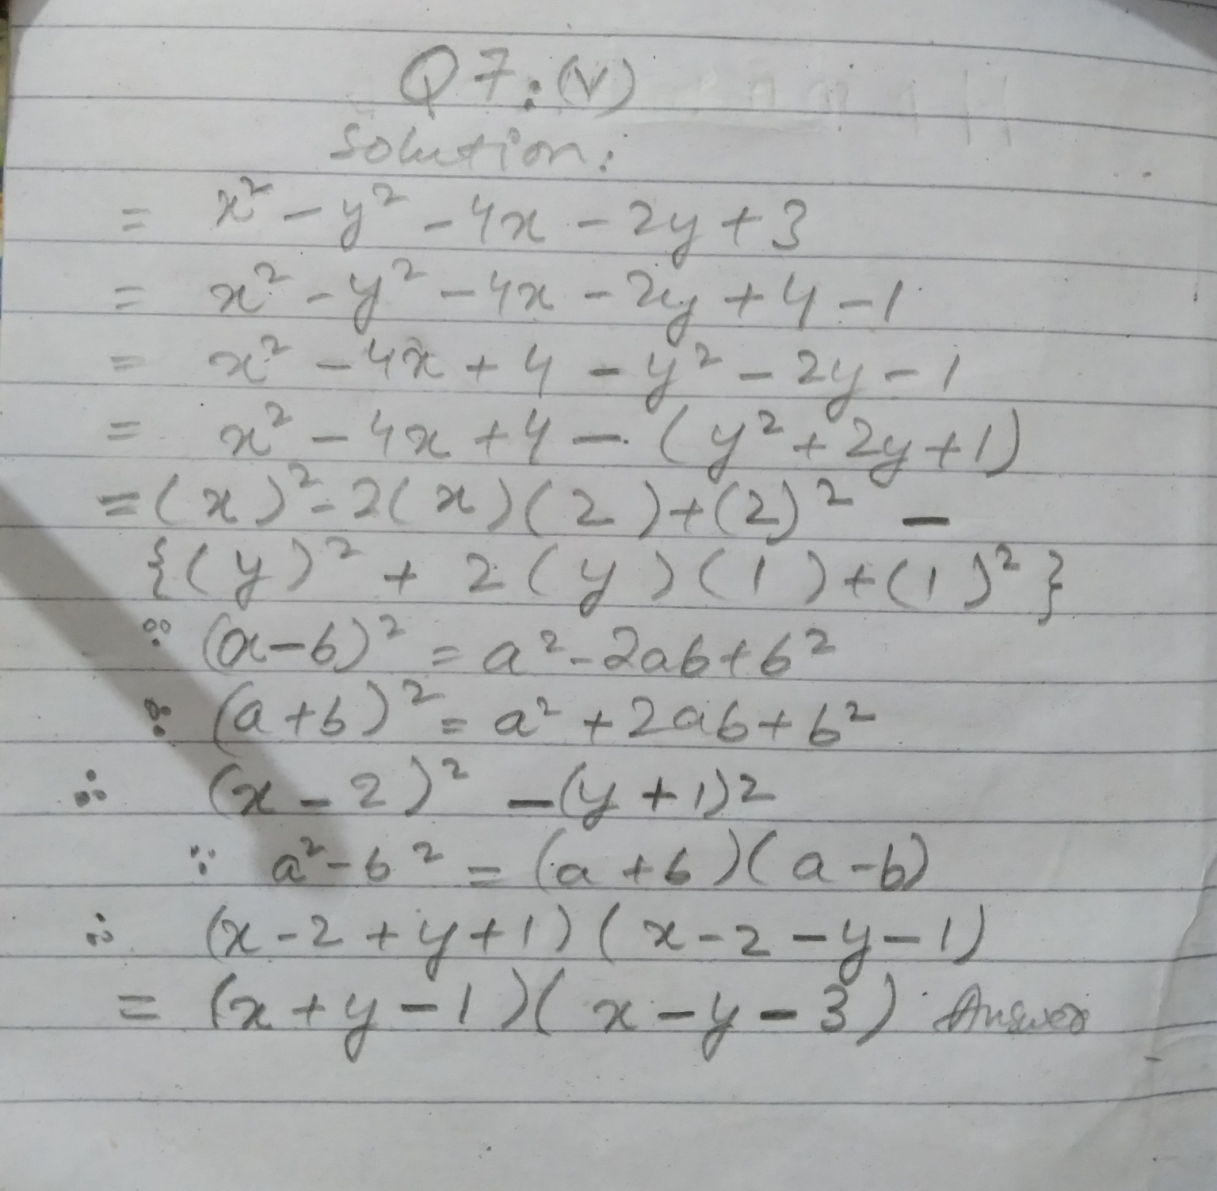 Q7:(v)
Solution:
= x² - y² - 4x - 2y + 3
= x² - y² - 4x - 2y + 4 - 1
= x² - 4x + 4 - y² - 2y - 1
= x² - 4x + 4 - (y² + 2y + 1)
= (x)² - 2(x)(2) + (2)² -
{(y)² + 2(y)(1) + (1)²}
∵ (a-b)² = a² - 2ab + b²
∵ (a+b)² = a² + 2ab + b²
∴ (x-2)² - (y+1)2
∵ a² - b² = (a+b)(a-b)
∴ (x-2+y+1)(x-2-y-1)
= (x+y-1)(x-y-3) Answer